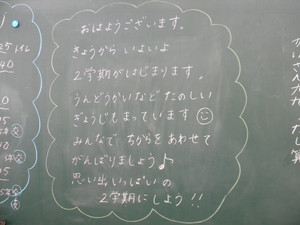 おはようございます。
きょうから いよいよ
2学期がはじまります。
うんどうかいなど たのしい
ぎょうじもまっています
みんなで ちからをあわせて
がんばりましょう♪
思い出いっぱいの
2学期にしよう!!